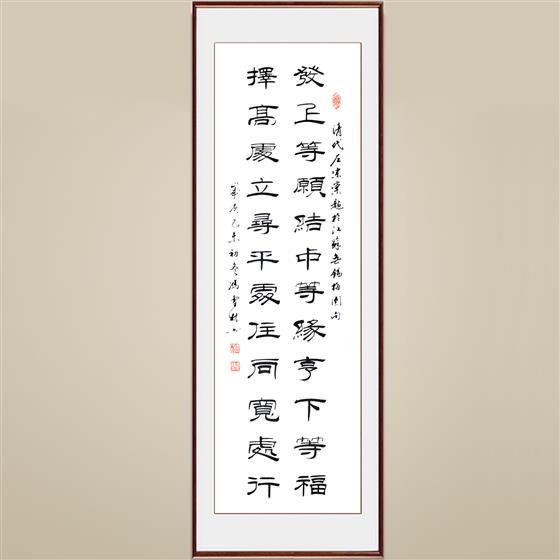 清代左宗棠題於江蘇無錫梅園句
發上等願結中等緣享下等福
擇高處立尋平處住向寬處行
乙未初冬馮雪林